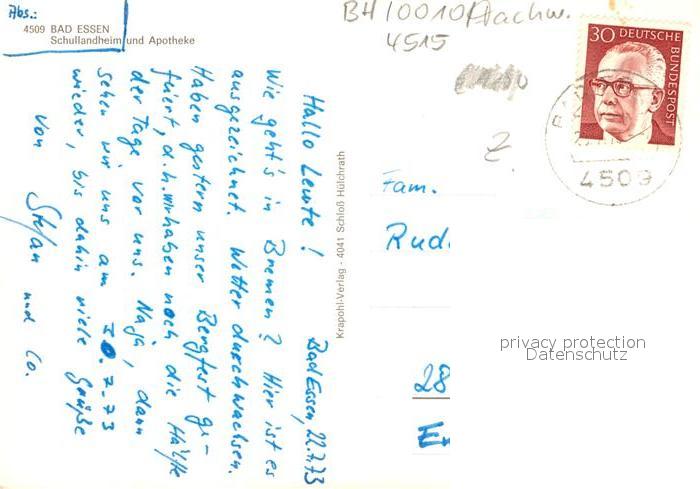 Abs.:
4509 BAD ESSEN
Schullandheim und Apotheke
Hallo Leute! Bad Essen, 22.7.73
Wie geht's in Bremen? Hier ist es
ausgezeichnet. Wetter durchwachsen.
Haben gestern unser Bergfest ge-
feiert, d.h. wir haben noch die Hälfte
der Tage vor uns. Naja, dann
sehen wir uns am 30.7.73
wieder, bis dahin viele Grüße
von Stefan und Co.
Krapohl-Verlag · 4041 Schloß Hülchrath
BH10010 Fachw.
4515
30 DEUTSCHE BUNDESPOST
4509
Z
Fam.
Rud.
28
privacy protection
Datenschutz